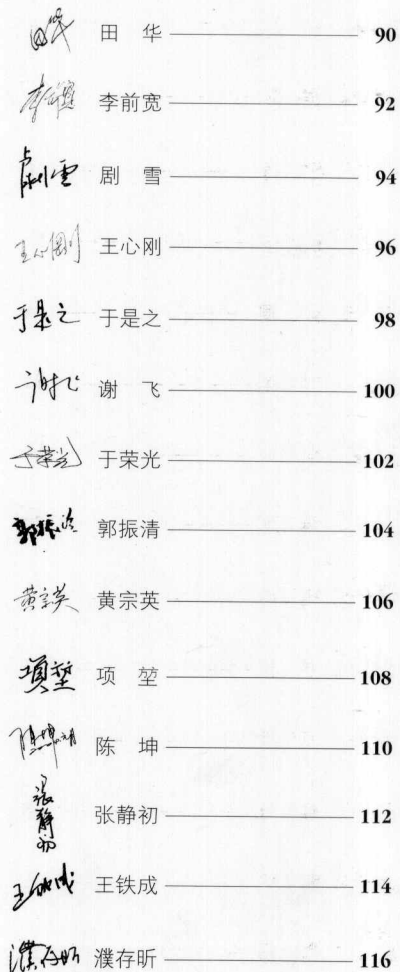 田华 田 华 90
李前宽 李前宽 92
剧雪 剧 雪 94
王心刚 王心刚 96
于是之 于是之 98
谢飞 谢 飞 100
于荣光 于荣光 102
郭振清 郭振清 104
黄宗英 黄宗英 106
項堃 项 堃 108
陈坤 陈 坤 110
張静初 张静初 112
王铁成 王铁成 114
濮存昕 濮存昕 116